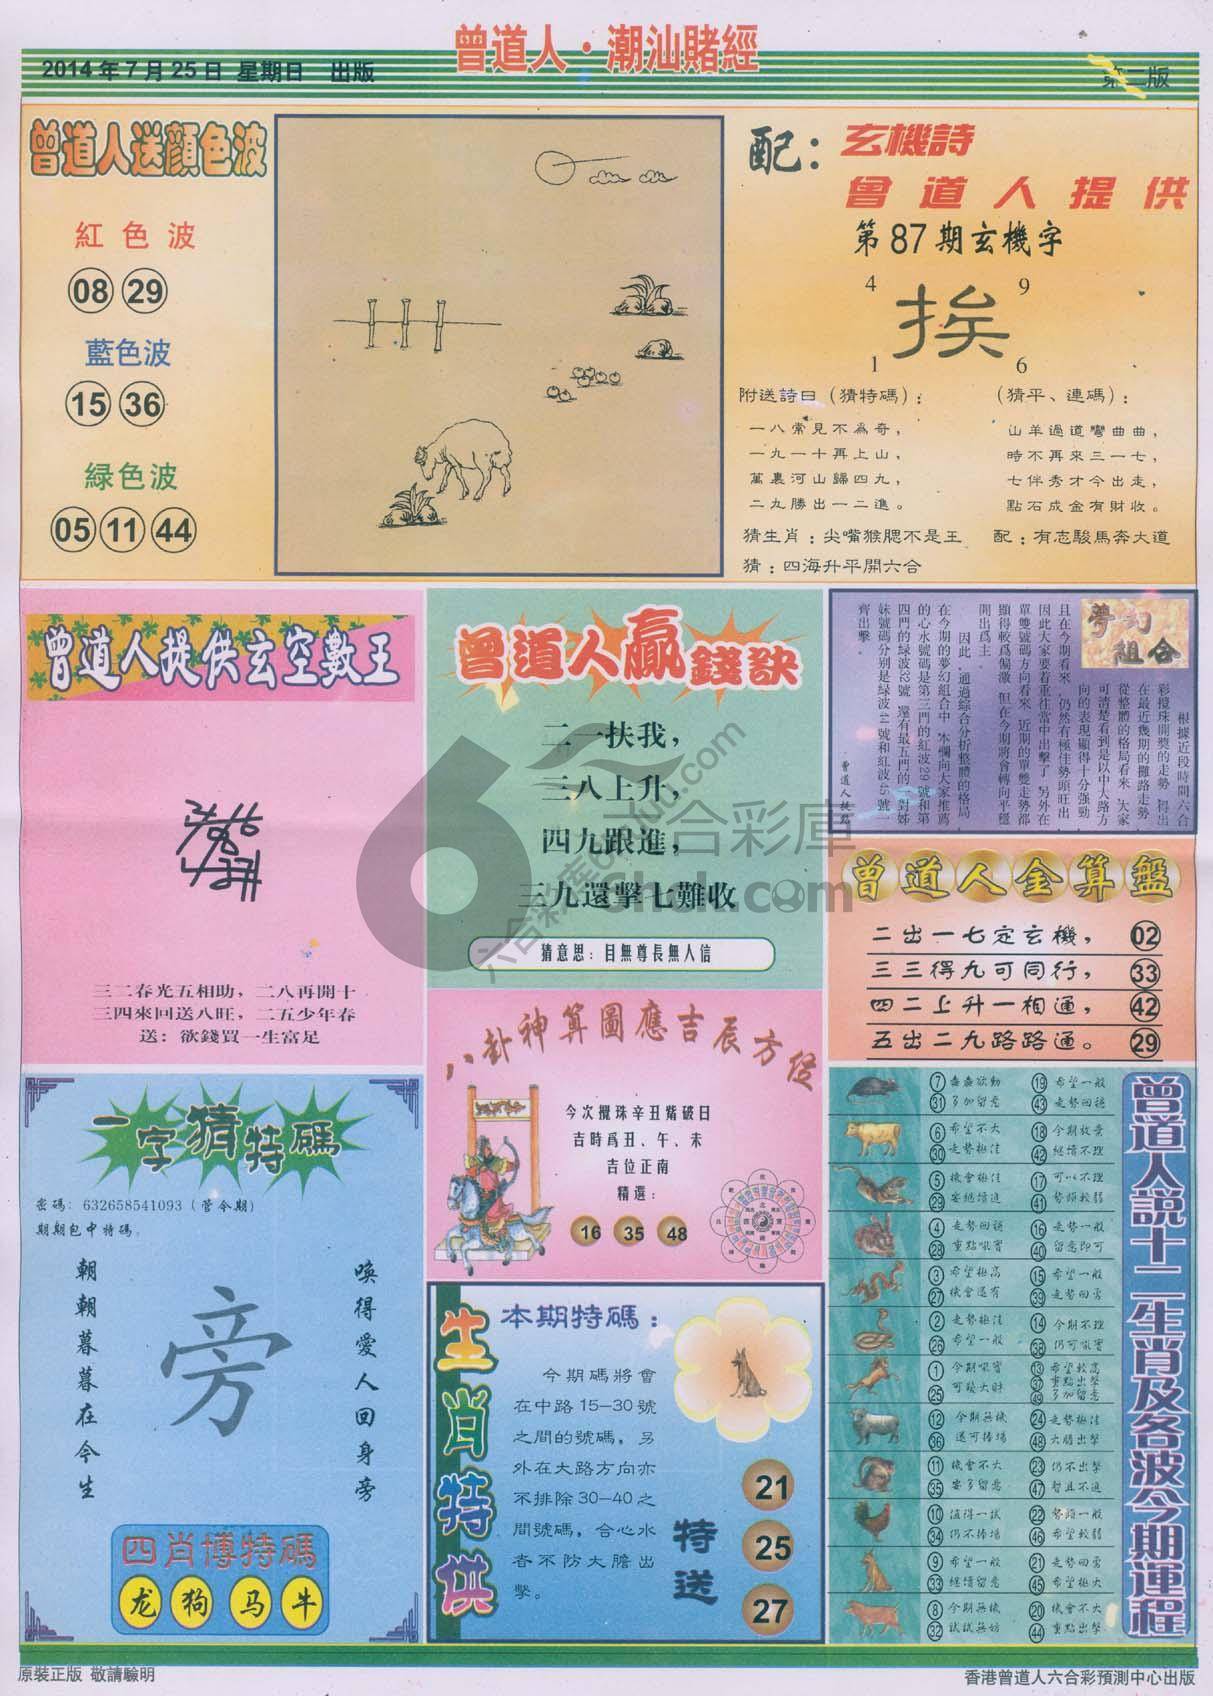 曾道人·潮汕賭經
2014年7月25日 星期日 出版
第二版
曾道人送顏色波
紅色波
08 29
藍色波
15 36
綠色波
05 11 44
配：
玄機詩
曾道人提供
第87期玄機字
4 9
挨
1 6
附送詩曰（猜特碼）：
一八常見不為奇，
一九一十再上山，
萬裏河山歸四九，
二九勝出一二進。
（猜平、連碼）：
山羊過道彎曲曲，
時不再來三一七，
七伴秀才今出走，
點石成金有財收。
猜生肖：尖嘴猴腮不是王
配：有志駿馬奔大道
猜：四海升平開六合
曾道人提供玄空數王
三二春光五相助，二八再開十
三四來回送八旺，二五少年春
送：欲錢買一生富足
曾道人贏錢訣
二一扶我，
三八上升，
四九跟進，
三九還擊七難收
猜意思：目無尊長無人信
夢幻組合
根據近段時間六合
彩攪珠開獎的走勢 得出
在最近幾期的攤路走勢
從整體的格局看來 大家
可清楚看到是以中大路方
向的表現顯得十分強勁
且在今期看來，仍然有極佳勢頭旺出
因此大家要着重往當中出擊了 另外在
單雙號碼方向看來 近期的單雙走勢都
顯得較爲偏激 但在今期將會轉向平穩
開出爲主
因此，通過綜合分析整體的格局
在今期的夢幻組合中 本欄向大家推薦
的心水號碼是第三門的紅波29號和第
四門的綠波32號 還有最五門的一對姊
妹號碼分別是綠波44號和紅波45號一
齊出擊。
曾道人提點
曾道人金算盤
二出一七定玄機， 02
三三得九可同行， 33
四二上升一相通， 42
五出二九路路通。 29
八卦神算圖應吉辰方位
今次攪珠辛丑紫破日
吉時爲丑、午、未
吉位正南
精選：
16 35 48
一字猜特碼
密碼：632658541093（管今期）
期期包中特碼。
喚得愛人回身旁
旁
朝朝暮暮在今生
四肖博特碼
龙 狗 马 牛
生肖特供
本期特碼：
今期碼將會
在中路15—30號
之間的號碼，另
外在大路方向亦
不排除30—40之
間號碼，合心水
者不防大膽出
擊。
特送
21
25
27
曾道人說十二生肖及各波今期運程
7 蠢蠢欲動 19 希望一般
31 多加留意 43 走勢回穩
6 希望不大 18 今期放棄
30 走勢極佳 42 繼續不理
5 機會極佳 17 可以不理
29 要繼續追 41 勢頭較弱
4 走勢回穩 16 走勢一般
28 重點吼實 40 留意即可
3 希望極高 15 希望一般
27 機會還有 39 走勢回落
2 走勢極佳 14 今期不理
26 希望一般 38 仍可吼實
1 今期吼實 13 希望較高
25 可發大財 37 重點出擊
49 多加留意
12 今期無機 24 走勢極佳
36 還可捧場 48 大膽出擊
11 機會不大 23 仍不出擊
35 要多留意 47 暫且不追
10 值得一試 22 勢頭一般
34 仍不捧場 46 希望較弱
9 希望一般 21 走勢回落
33 繼續留意 45 希望極大
8 今期無機 20 機會不大
32 試試無妨 44 重點出擊
六合彩庫
6hck.com
原裝正版 敬請驗明
香港曾道人六合彩預測中心出版